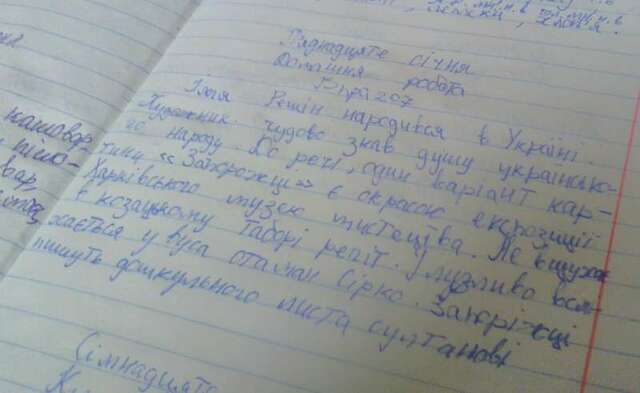 П'ятнадцяте січня
Домашня робота
Впр 207
Ілля Рєпін народився в Україні.
Художник чудово знав душу українсько-
го народу. До речі, один варіант кар-
тини «Запорожці» є окрасою експозиції
Харківського музею мистецтва. Не вщухає
в козацькому таборі регіт. Улузливо всмі-
хається у вуса отаман Сірко. Запоріжці
пишуть дошкульного листа султанові
Сімнадцяте